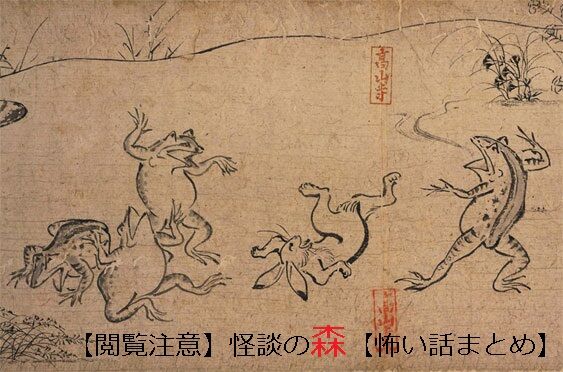 高山寺
高山
【閲覧注意】怪談の森【怖い話まとめ】